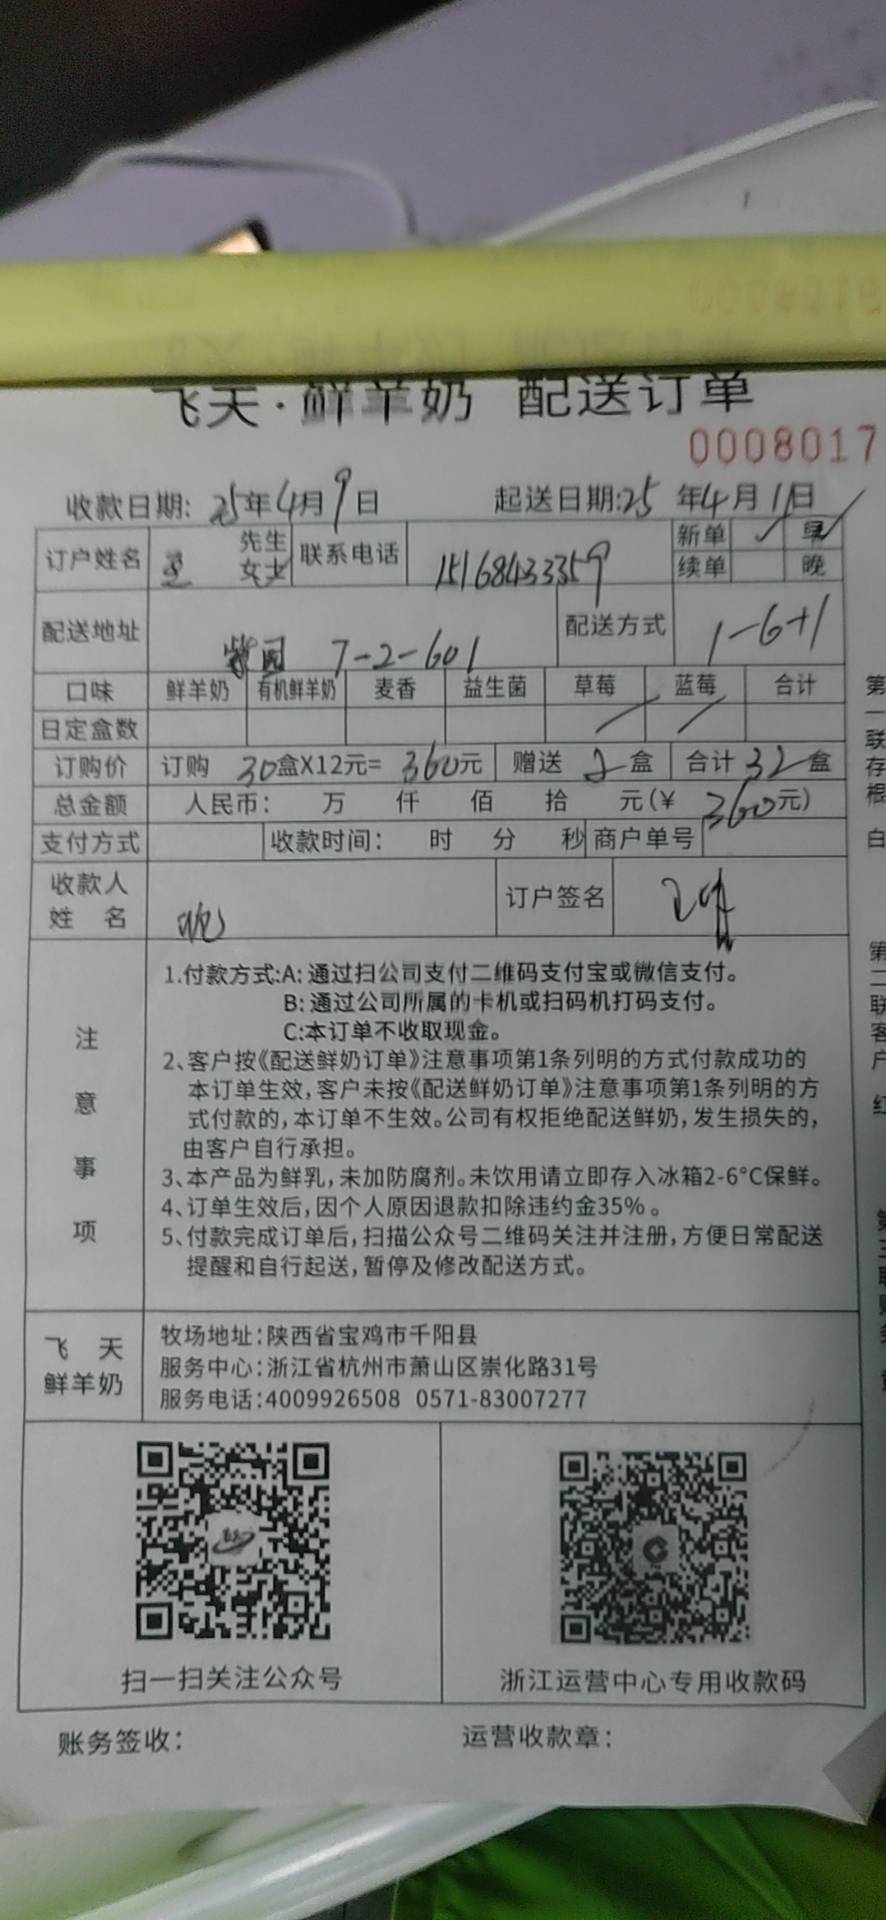 飞天·鲜羊奶 配送订单
0008017
收款日期: 25年4月9日 起送日期:25年4月11日
订户姓名 先生 女士 联系电话 15168433359 新单 ✓ 早 ✓
续单 晚
配送地址 紫园 7-2-601 配送方式 1-6+1
口味 鲜羊奶 有机鲜羊奶 麦香 益生菌 草莓 蓝莓 合计
日定盒数
订购价 订购 30盒X12元= 360元 赠送 2盒 合计 32盒
总金额 人民币: 万 仟 佰 拾 元(¥ 360元)
支付方式 收款时间: 时 分 秒 商户单号
收款人
姓 名 订户签名
注意事项
1.付款方式:A: 通过扫公司支付二维码支付宝或微信支付。
B: 通过公司所属的卡机或扫码机打码支付。
C:本订单不收取现金。
2、客户按《配送鲜奶订单》注意事项第1条列明的方式付款成功的
本订单生效,客户未按《配送鲜奶订单》注意事项第1条列明的方
式付款的,本订单不生效。公司有权拒绝配送鲜奶,发生损失的,
由客户自行承担。
3、本产品为鲜乳,未加防腐剂。未饮用请立即存入冰箱2-6°C保鲜。
4、订单生效后,因个人原因退款扣除违约金35%。
5、付款完成订单后,扫描公众号二维码关注并注册,方便日常配送
提醒和自行起送,暂停及修改配送方式。
飞 天
鲜羊奶
牧场地址:陕西省宝鸡市千阳县
服务中心:浙江省杭州市萧山区崇化路31号
服务电话:4009926508 0571-83007277
扫一扫关注公众号 浙江运营中心专用收款码
账务签收: 运营收款章:
第一联存根 白
第二联客户 红